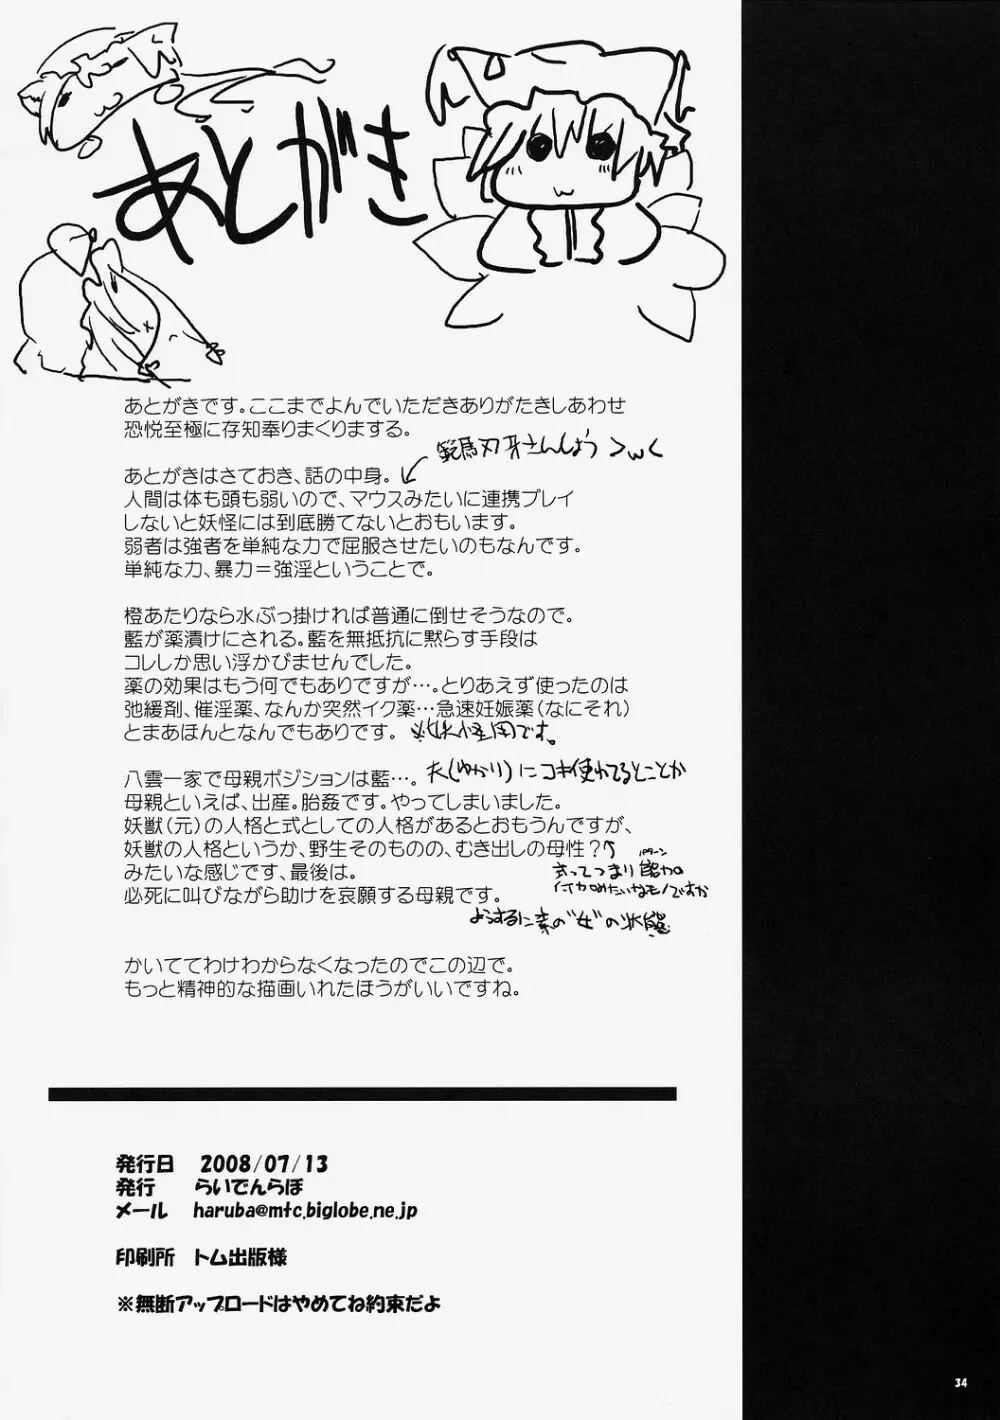 あとがき
あとがきです。ここまでよんでいただきありがたきしあわせ
恐悦至極に存知奉りまくりまする。
範馬刃牙さんしょう >w<
あとがきはさておき、話の中身。
人間は体も頭も弱いので、マウスみたいに連携プレイ
しないと妖怪には到底勝てないとおもいます。
弱者は強者を単純な力で屈服させたいのもなんです。
単純な力、暴力＝強淫ということで。
橙あたりなら水ぶっ掛ければ普通に倒せそうなので。
藍が薬漬けにされる。藍を無抵抗に黙らす手段は
コレしか思い浮かびませんでした。
薬の効果はもう何でもありですが…。とりあえず使ったのは
弛緩剤、催淫薬、なんか突然イク薬…急速妊娠薬（なにそれ）
とまあほんとなんでもありです。 ※妖怪用です。
八雲一家で母親ポジションは藍…。 夫(ゆかり)にコキ使われてるとことか
母親といえば、出産。胎姦です。やってしまいました。
妖獣（元）の人格と式としての人格があるとおもうんですが、
妖獣の人格というか、野生そのものの、むき出しの母性？
みたいな感じです、最後は。
式ってつまり能力の
付加みたいなモノですか
必死に叫びながら助けを哀願する母親です。
ようするに素の"女"の状態
かいててわけわからなくなったのでこの辺で。
もっと精神的な描画いれたほうがいいですね。
発行日 2008/07/13
発行 らいでんらぼ
メール haruba@mtc.biglobe.ne.jp
印刷所 トム出版様
※無断アップロードはやめてね約束だよ
34